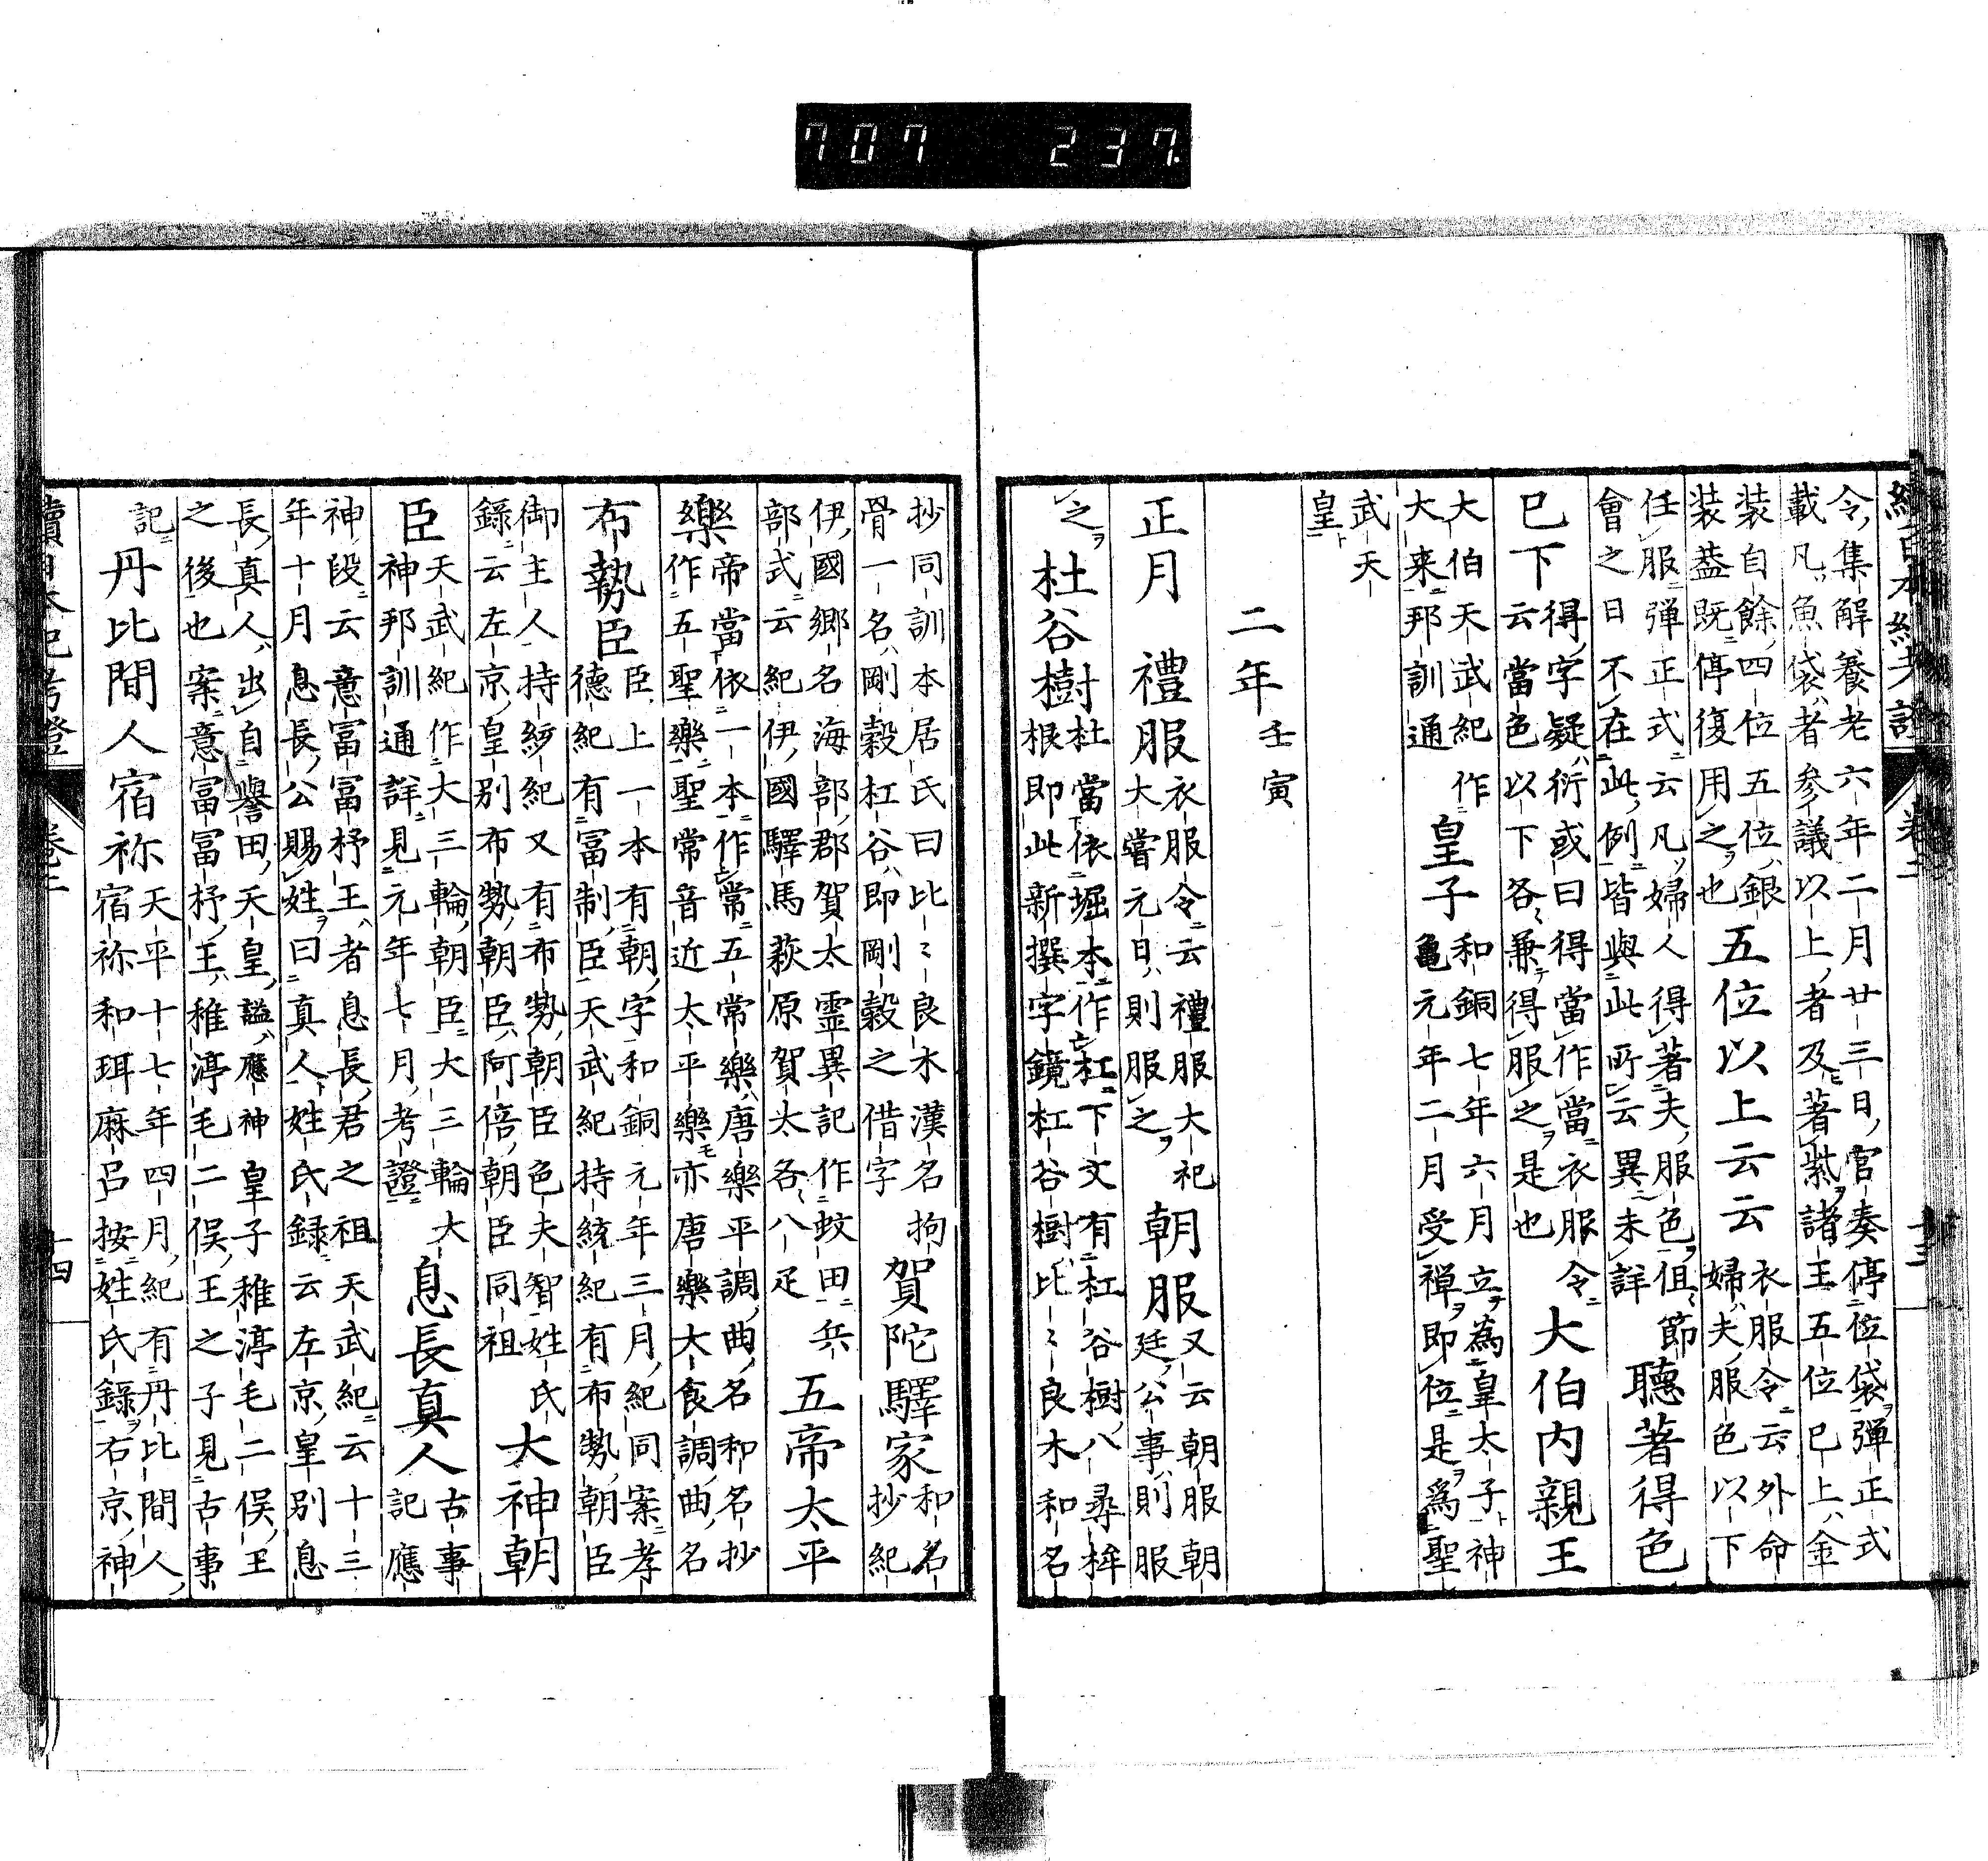 707 237.
令集解養老六年二月廿三日官奏停位袋弾正式
載凡魚袋者参議以上者及著紫諸王五位已上金
装自餘四位五位銀
装葢既停復用之也
五位以上云云
衣服令云外命
婦夫服色以下
任服弾正式云凡婦人得著夫服色但節
會之日不在此例皆與此所云異未詳
聽著得色
已下
得字疑衍或曰得當作當衣服令
云當色以下各兼得服之是也
大伯內親王
大伯天武紀作
大来邦訓通
皇子
和銅七年六月立為皇太子神
亀元年二月受禅即位是爲聖
武天
皇
二年
壬寅
正月
禮服
衣服令云禮服大祀
大嘗元日則服之
朝服
又云朝服朝
廷公事則服
之
杜谷樹
杜當依堀本作杠下文有杠谷樹八尋桙
根即此新撰字鏡杠谷樹比〻良木和名
抄同訓本居氏曰比〻良木漢名拘
骨一名剛穀杠谷即剛穀之借字
賀陀驛家
和名
抄紀
伊國郷名海部郡賀太霊異記作蚊田兵
部武云紀伊國驛馬萩原賀太各八疋
五帝太平
樂
帝當依一本作常五常樂唐樂平調曲名和名抄
作五聖樂聖常音近大平樂亦唐樂大食調曲名
布勢臣
臣上一本有朝字和銅元年三月紀同案孝
德紀有冨制臣天武紀持統紀有布勢朝臣
御主人持統紀又有布勢朝臣色夫智姓氏
錄云左京皇別布勢朝臣阿倍朝臣同祖
大神朝
臣
天武紀作大三輪朝臣大三輪大
神邦訓通詳見元年七月考證
息長真人
古事
記應
神段云意冨冨杼王者息長君之祖天武紀云十三
年十月息長公賜姓曰真人姓氏録云左京皇別息
長真人出自譽田天皇謚應神皇子稚渟毛二俣王
之後也案意冨冨杼王稚渟毛二俣王之子見古事
記
丹比間人宿祢
天平十七年四月紀有丹比間人
宿祢和珥麻呂按姓氏錄右京神
續日本紀考證
卷二
十四